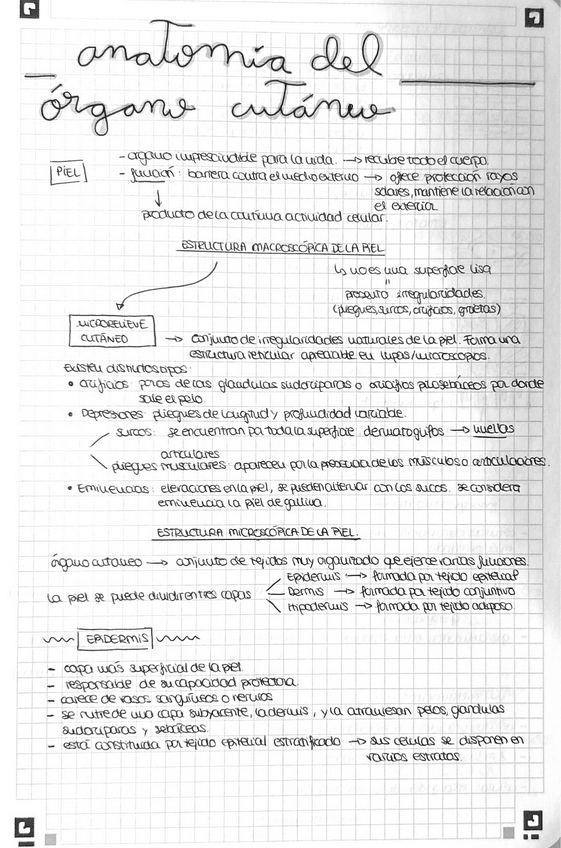 anatomía del
órgano cutáneo
PIEL
- organo imprescindible para la vida. → recubre todo el cuerpo
- función: barrera contra el medio externo → ofrece protección rayos
solares, mantiene la relación con
el exterior
↓
producto de la continua actividad celular.
ESTRUCTURA MACROSCÓPICA DE LA PIEL
↳ no es una superficie lisa
"
presenta irregularidades.
(pliegues, surcos, orificios, grietas)
MICRORELIEVE
CUTÁNEO
→ conjunto de irregularidades naturales de la piel. Forma una
estructura reticular apreciable en lupas/microscopios.
Existen distintos tipos:
• orificios: poros de las glandulas sudoriparas o orificios pilosebáceos por donde
sale el pelo
• Depresiones: pliegues de longitud y profundidad variable.
surcos: se encuentran por toda la superficie. dermatoglifos → huellas
articulares
pliegues musculares: aparecen por la presencia de los músculos o articulaciones.
• Eminencias: elevaciones en la piel, se pueden alternar con los surcos. se considera
eminencia la piel de gallina.
ESTRUCTURA MICROSCÓPICA DE LA PIEL.
órgano cutaneo → conjunto de tejidos muy organizado que ejerce varias funciones.
la piel se puede dividir en tres capas
Epidermis → formada por tejido epitelial
Dermis → formada por tejido conjuntivo
Hipodermis → formada por tejido adiposo
EPIDERMIS
- capa más superficial de la piel.
- responsable de su capacidad protectora.
- carece de vasos sanguíneos o nervios
- se nutre de una capa subyacente, la dermis, y la atraviesan pelos, glandulas
sudoriparas y sebáceas.
- está constituida por tejido epitelial estratificado → sus celulas se disponen en
varios estratos.